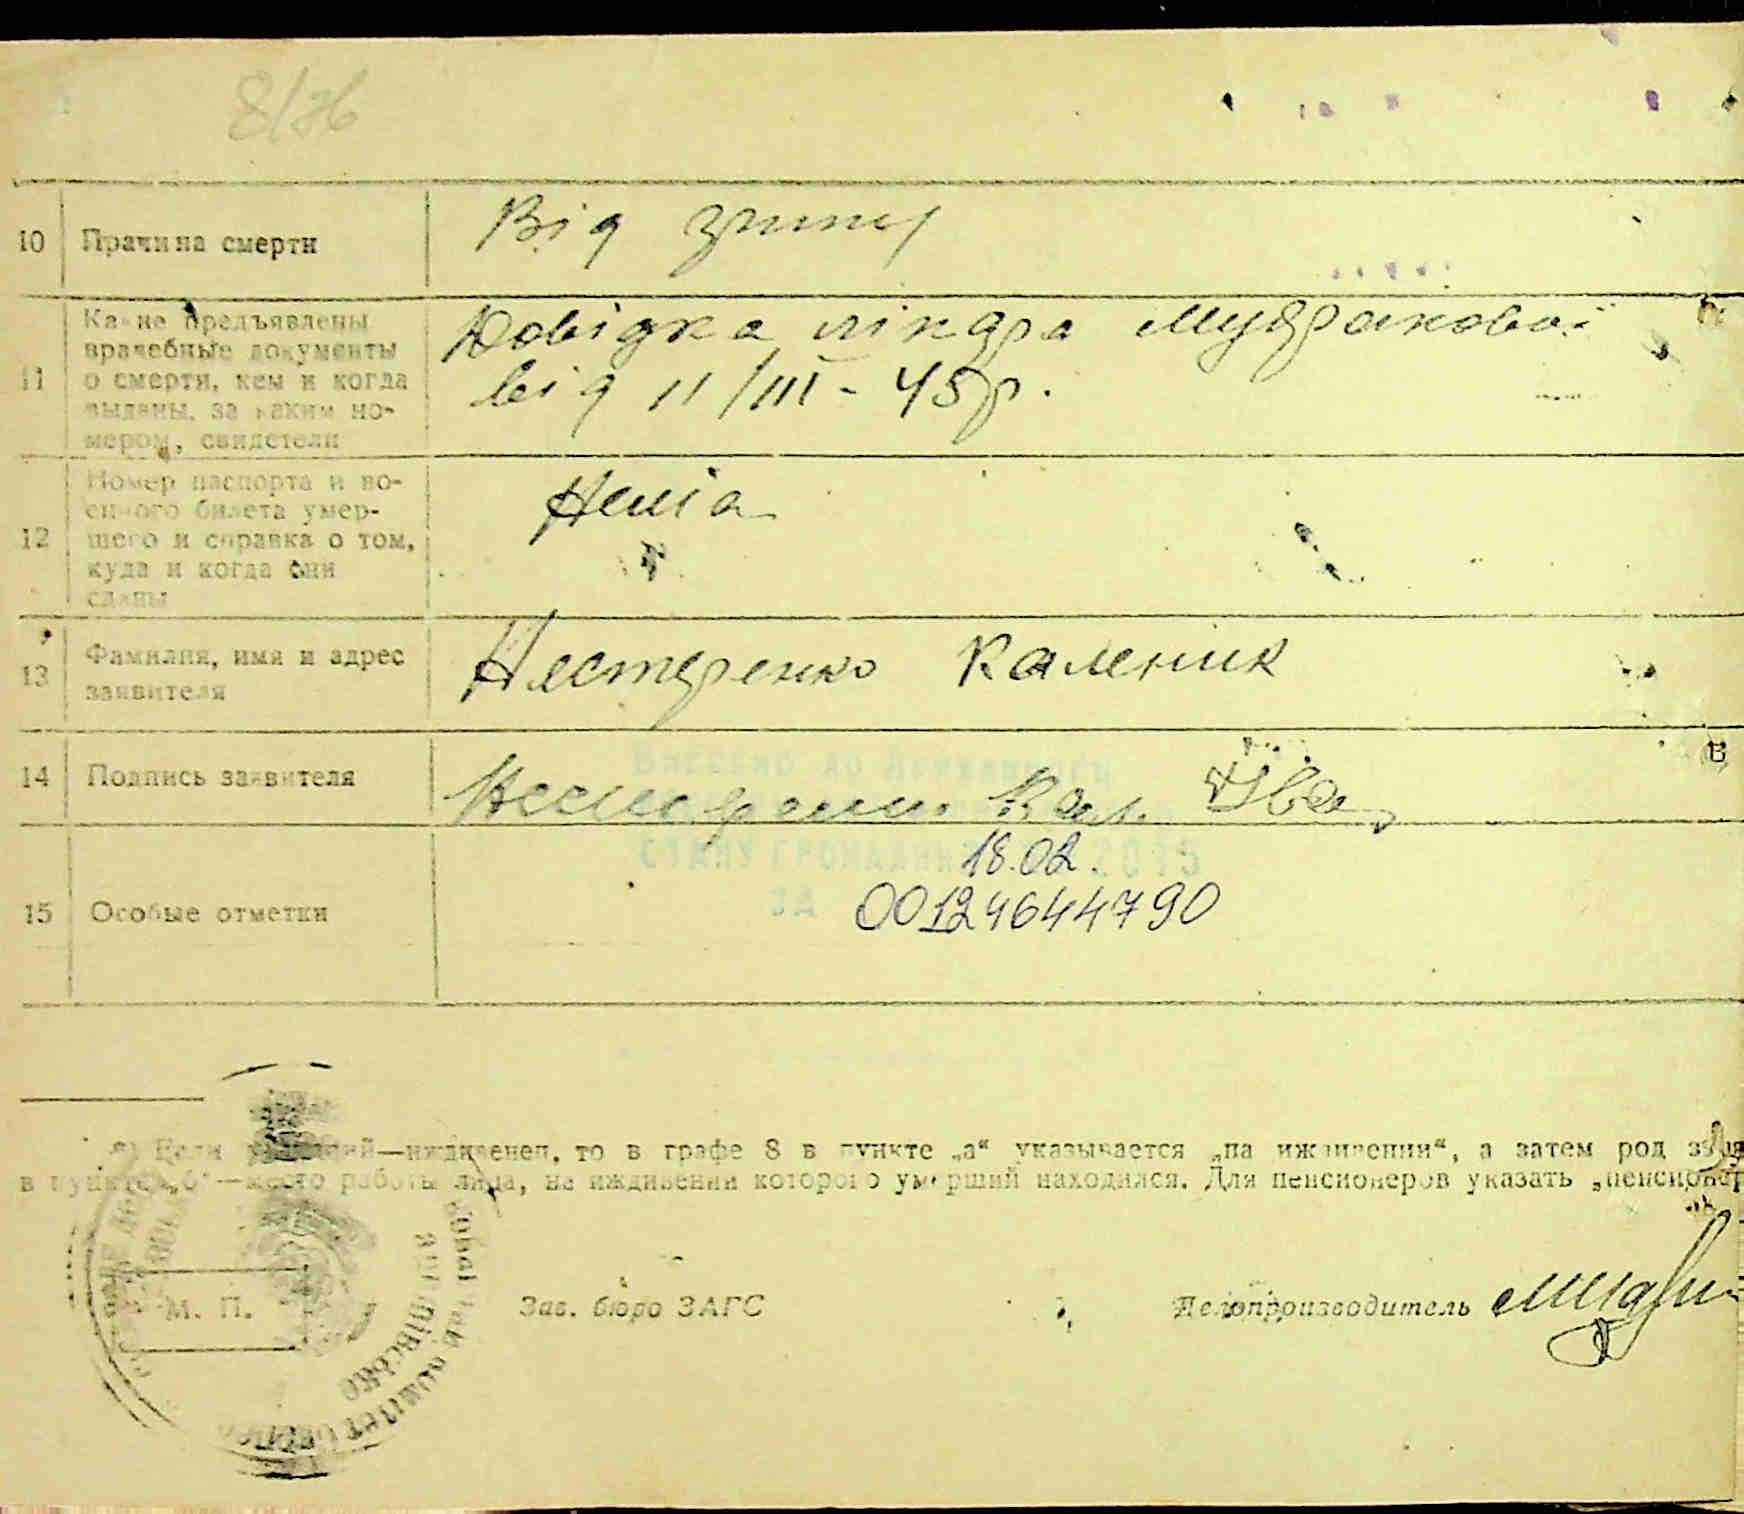 8/76
10 Причина смерти
Від грипу
11 Какие предъявлены
врачебные документы
о смерти, кем и когда
выданы, за каким но-
мером, свидетели
Довідка лікара
від 11/III - 45р.
12 Номер паспорта и во-
енного билета умер-
шего и справка о том,
куда и когда они
сданы
Нема
13 Фамилия, имя и адрес
заявителя
Нестеренко Каленик
14 Подпись заявителя
Внесено до Державного
Кал.
СТАНУ ГРОМАДЯН 2015
18.02.
15 Особые отметки
ЗА 00124644790
а) Если умерший—иждивенец, то в графе 8 в пункте „а“ указывается „на иждивении“, а затем род
в пункте „б“—место работы лица, на иждивении которого умерший находился. Для пенсионеров указать „пенсионер
М. П. Зав. бюро ЗАГС Делопроизводитель